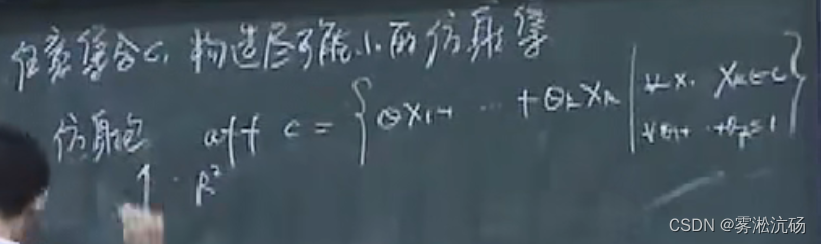 任意集合C,构造尽可能小的仿射集
仿射包 aff C = { θ₁x₁+ ⋯ + θₖxₖ | ∀x₁ xₖ∈C
∀θ₁+ ⋯ +θₖ=1 }
R²
CSDN @雾凇沆砀